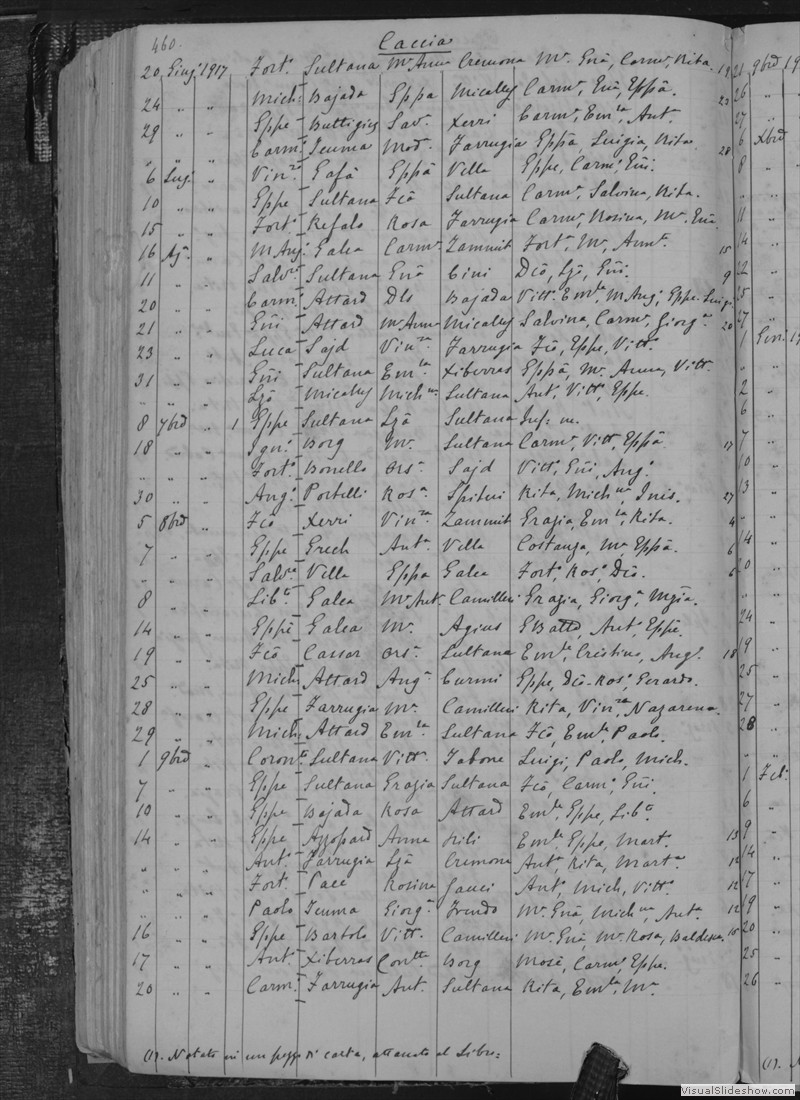 460. Caccia
20 Giug. 1917 Fort. Sultana Mª Anna Cremona Mª Enã, Carmª, Rita. 19
24 „ „ Mich. Bajada Eppa Micallef Carmª, Enã, Eppã. 23
29 „ „ Eppe Buttigieg Sav. Xerri Carmª, Emla, Antª.
„ „ Carm. Teuma Mod. Farrugia Eppã, Luigia, Rita. 28
6 Lug. „ Vin. Gafà Eppã Vella Eppe, Carm, Eñi.
10 „ „ Eppe Sultana Fcã Sultana Carmª, Salvina, Rita.
15 „ „ Fort. Refalo Rosa Farrugia Carmª, Rosina, Mª Enã.
16 Ag. „ M. Ang. Galea Carmª Zammit Fortª, Mª, Annª. 15
11 „ „ Salv. Sultana Enã Cini Dcõ, Ljã, Eñi. 9
20 „ „ Carm. Attard Dls Bajada Vittª Emla, M. Ang, Eppe, Luig.
21 „ „ Eñi Attard Mª Anna Micallef Salvina, Carmª, Giorgª 20
23 „ „ Luca Sajd Vin. Farrugia Fcõ, Eppe, Vittª
31 „ „ Eñi Sultana Emla Xiberras Eppã, Mª Anna, Vittª.
„ „ „ Ljõ Micallef Mich.na Sultana Antª, Vittª, Eppe.
8 7brẽ „ 1 Eppe Sultana Ljã Sultana Inf: m.
18 „ „ Ign. Borg Mª Sultana Carmª, Vittª, Eppã. 17
„ „ „ Fort. Bonello Orsª Sajd Vittª, Eñi, Angª.
30 „ „ Ang. Portelli Rosª Spiteri Rita, Mich.na, Inis. 27
5 8brẽ „ Fcõ Xerri Vin. Zammit Grazia, Emla, Rita. 4
7 „ „ Eppe Grech Antª Vella Costanza, Mª, Eppã. 6
„ „ „ Salv. Vella Eppa Galea Fortª, Rosª, Dcõ. 6
8 „ „ Lib. Galea Mª Ant. Camilleri Grazia, Giorgª, Mgia.
14 „ „ Eppe Galea Mª Agius GBatta, Antª, Eppe.
19 „ „ Fcõ Cassar Orsª Sultana Emla, Cristina, Angª. 18
25 „ „ Mich. Attard Angª Curmi Eppe, Dcõ, Rosª, Gerardo.
28 „ „ Eppe Farrugia Mª Camilleri Rita, Vin., Nazarena.
29 „ „ Mich. Attard Emla Sultana Fcõ, Emla, Paolo.
1 9brẽ „ Coron. Sultana Vittª Tabone Luigi, Paolo, Mich.
7 „ „ Eppe Sultana Grazia Sultana Fcõ, Carm, Eñi.
10 „ „ Eppe Bajada Rosa Attard Emla, Eppe, Lib.
14 „ „ Eppe Azzopard Anna Hili Emla, Eppe, Mart. 13
„ „ Ant. Farrugia Ljã Cremona Antª, Rita, Martª 12
„ „ Fort. Pace Rosina Gauci Antª, Mich, Vittª 12
„ „ Paolo Teuma Giorgª Trevdo Mª Enã, Mich.na, Antª 12
16 „ „ Eppe Bartolo Vittª Camilleri Mª Enã, Mª Rosa, Baldess. 15
17 „ „ Ant. Xiberras Con. Borg Mosè, Carmª, Eppe.
20 „ „ Carm. Farrugia Antª Sultana Rita, Emla, Mª.
(1). Notato in un pezzo di carta, attaccato al Libro=
21 9brẽ 19
26 „
27 „
6 Xbrẽ
8 „
11 „
14 „
22 „
25 „
27 „
1 Gen. 19
2 „
6 „
7 „
10 „
13 „
14 „
20 „
24 „
19 „
25 „
27 „
28 „
1 Feb.
6 „
9 „
14 „
17 „
19 „
20 „
25 „
26 „
(1). N
VisualSlideshow.com